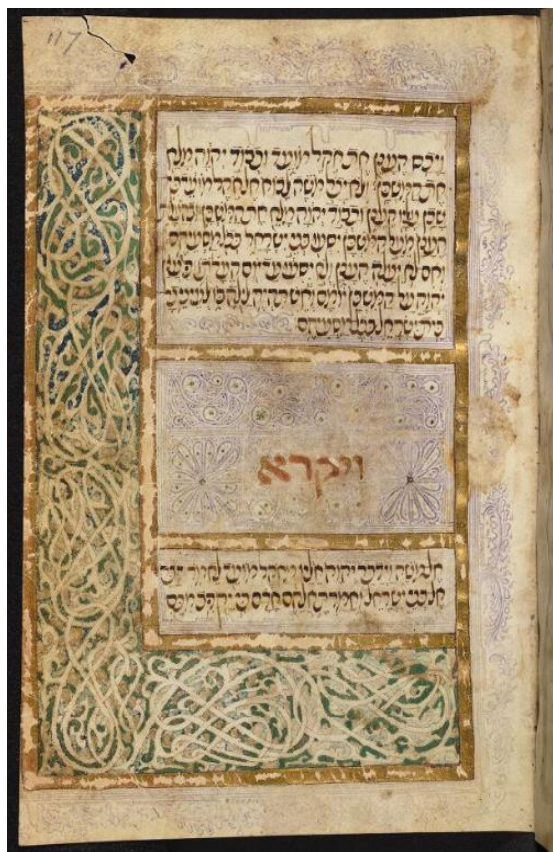 117
ויכס הענן את אהל מועד וכבוד יהוה מלא
את המשכן ולא יכל משה לבוא אל אהל מועד כי
שכן עליו הענן וכבוד יהוה מלא את המשכן ובהעלות
הענן מעל המשכן יסעו בני ישראל בכל מסעיהם
ואם לא יעלה הענן ולא יסעו עד יום העלתו כי ענן
יהוה על המשכן יומם ואש תהיה לילה בו לעיני כל
בית ישראל בכל מסעיהם
ויקרא
אל משה וידבר יהוה אליו מאהל מועד לאמר דבר
אל בני ישראל ואמרת אלהם אדם כי יקריב מכם